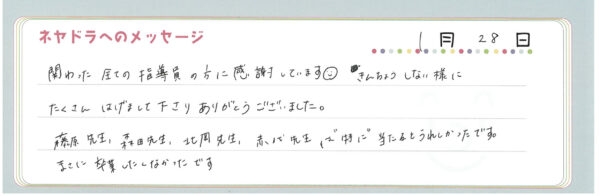 ネヤドラへのメッセージ
1月 28日
関わった 全ての 指導員の方に感謝しています☺ きんちょうしない様に
たくさん はげまして下さり ありがとうございました。
藤原先生, 森田先生, 北岡先生, 先生, が特に 当たるとうれしかったです。
まさに 卒業したしなかったです